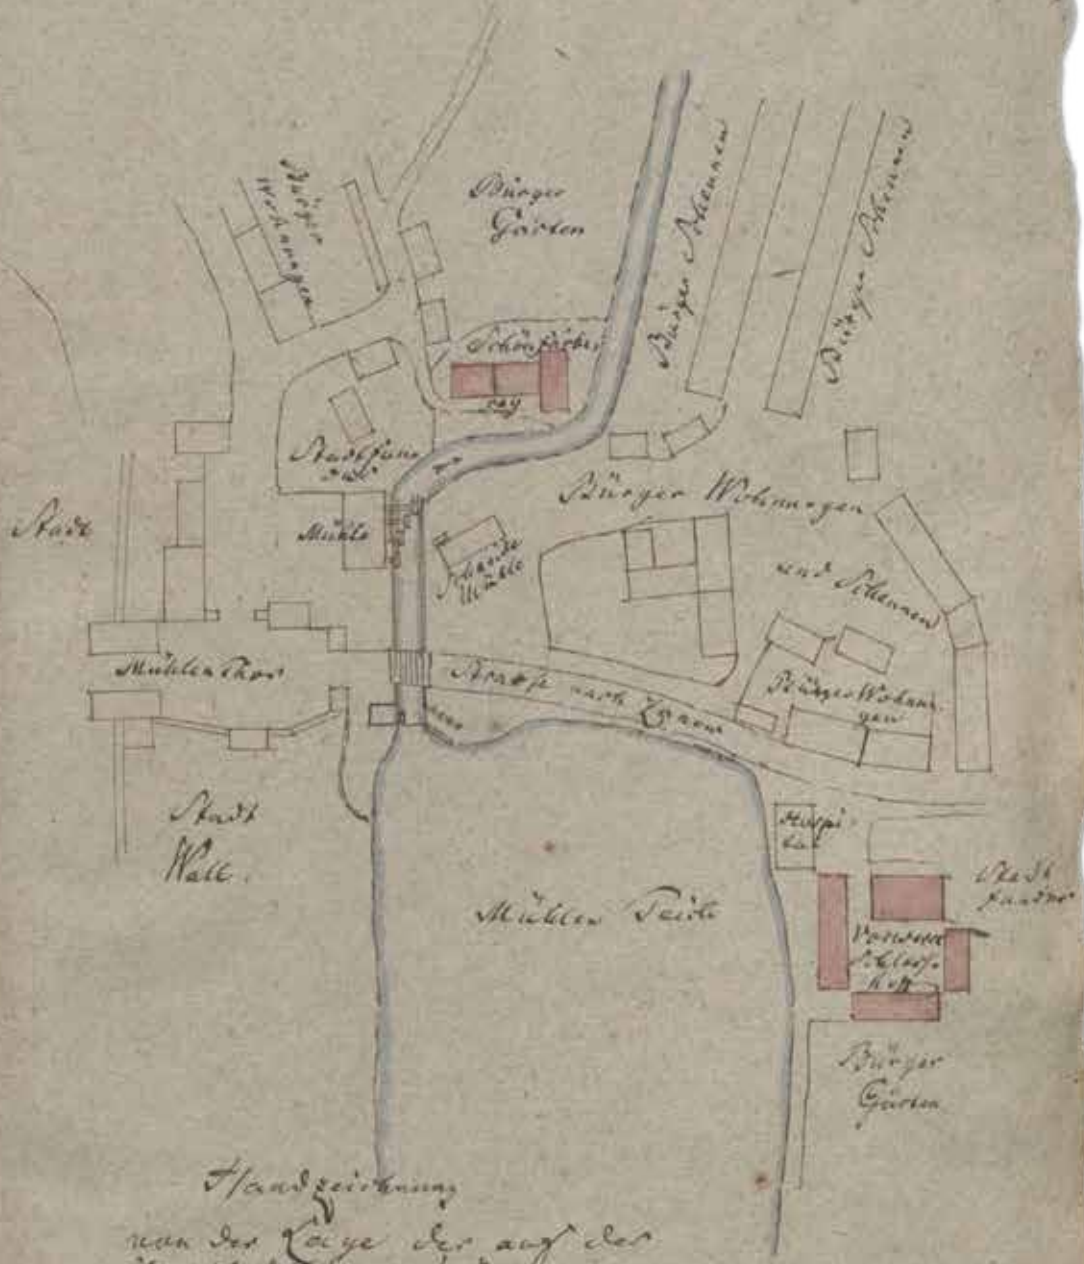 Bürger
Wohnungen
Bürger
Gärten
Bürger Scheunen
Bürger Scheunen
Schönfärbe-
rey
Stadt
Mühle
Schneide
Mühle
Bürger Wohnungen
und Scheunen
Mühlen Thor
Strasse nach
Bürger Wohnun-
gen
Stadt
Wall.
Hospi-
tal
Mühlen Teich
Stadt
Vorwerk
Schloss-
hoff
Bürger
Gärten
Handzeichnung
von der Lage der auf der